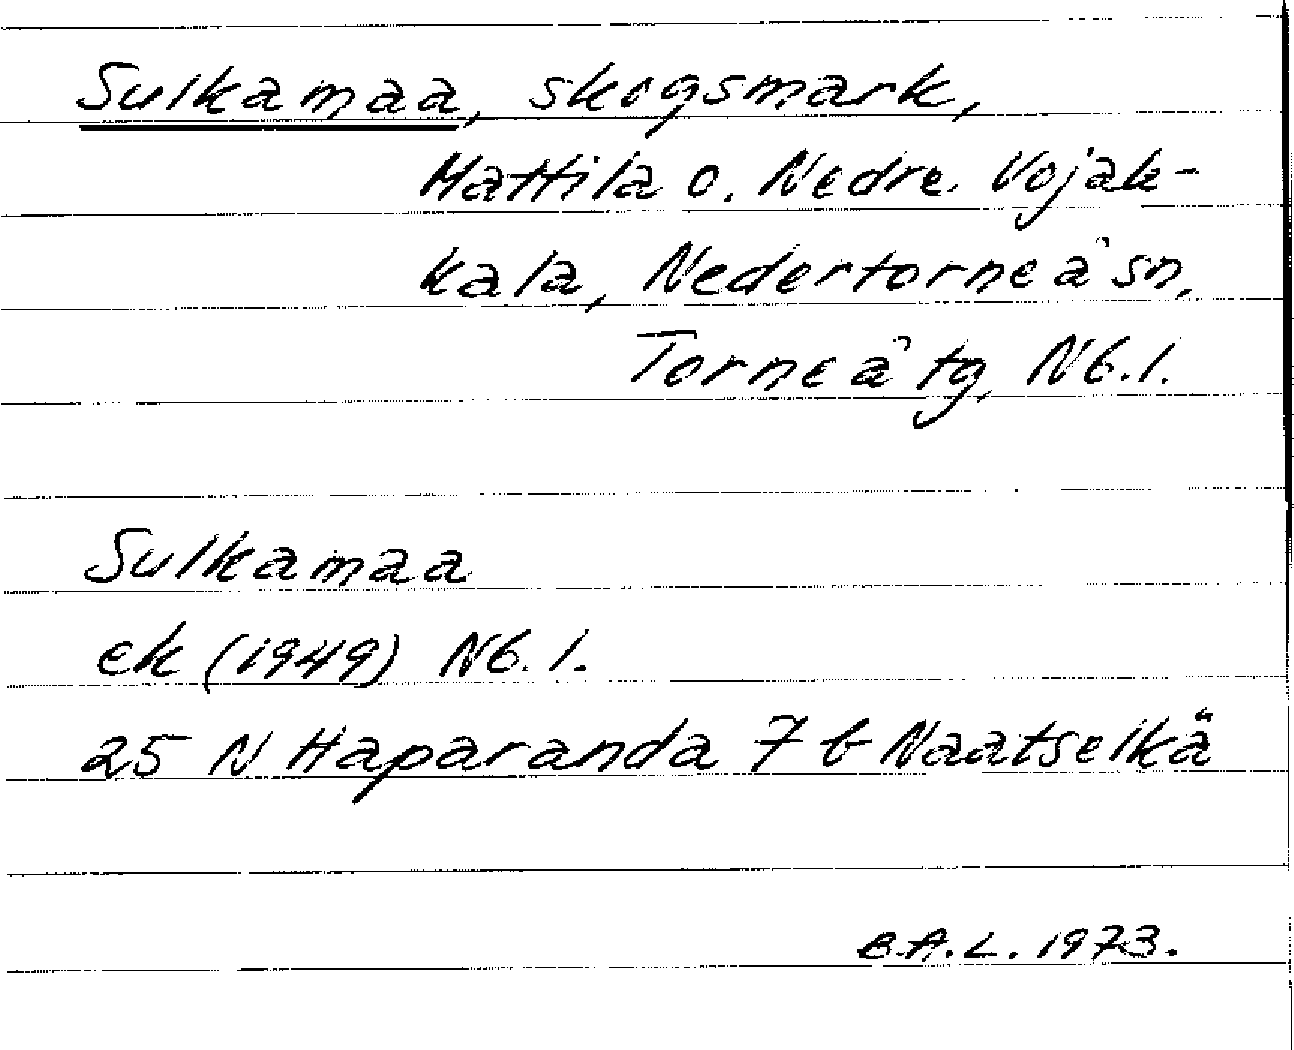 Sulkamaa, skogsmark,
Mattila o. Nedre Vojak-
kala, Nedertorneå sn,
Torneå tg, Nb.l.
Sulkamaa
ek (1949) Nb.l.
25 N Haparanda 7 b Naatselkä
B.A.L. 1973.